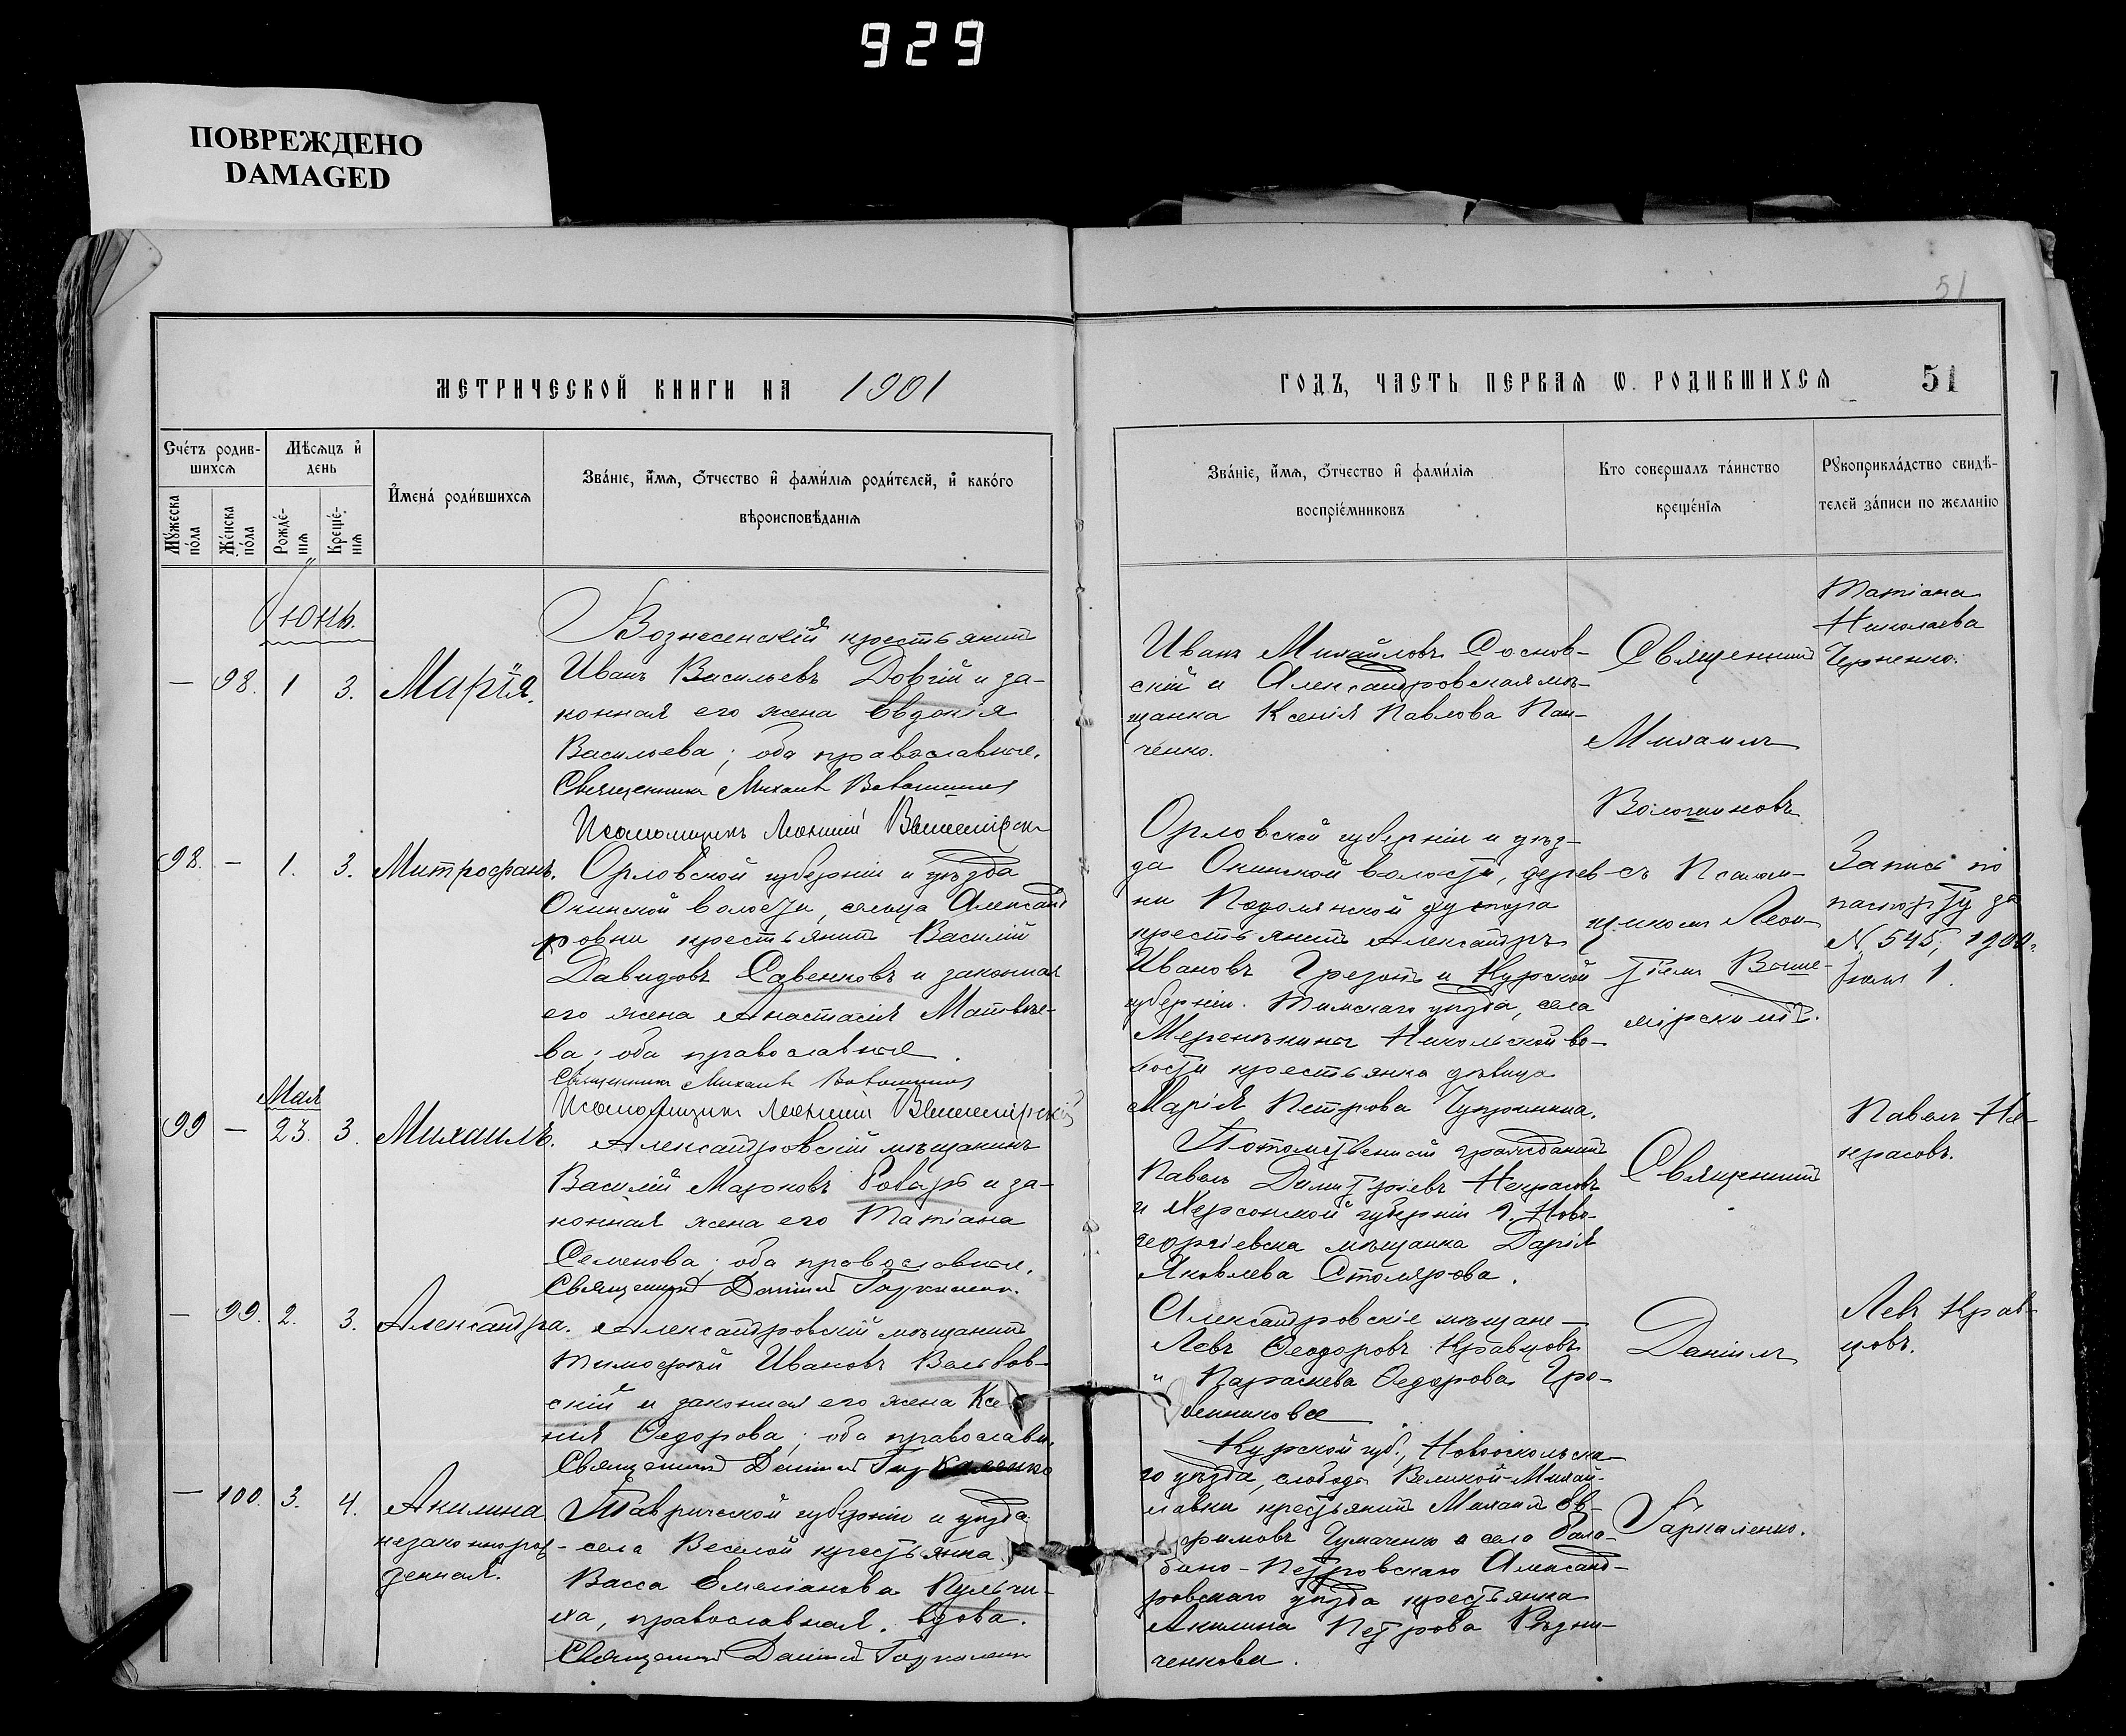 929
ПОВРЕЖДЕНО
DAMAGED
51
МЕТРИЧЕСКОЙ КНИГИ НА 1901
ГОДЪ, ЧАСТЬ ПЕРВАЯ Ѡ РОДИВШИХСЯ 51
Счетъ родив-
шихся
Мужеска пола
Женска пола
Мѣсяцъ и день
Рожде-
нія
Креще-
нія
Имена родившихся
Званіе, имя, отчество и фамилія родителей, и какого
вѣроисповѣданія
Званіе, имя, отчество и фамилія
воспріемниковъ
Кто совершалъ таинство
крещенія
Рукоприкладство свидѣ-
телей записи по желанію
Іюнь.
— 98. 1 3. Марія.
Вознесенскій крестьянинъ
Иванъ Васильевъ Довгій и за-
конная его жена Евдокія
Васильева; оба православные.
Священникъ Михаилъ
Псаломщикъ
Иванъ Михайловъ Соснов-
скій и Александровская мѣ-
щанка Ксенія Павлова Пан-
ченко.
Священникъ
Михаилъ
Татіана
Николаева
Черненко.
98. — 1. 3. Митрофанъ.
Орловской губерніи и уѣзда
волости, сельца Александ
ровки крестьянинъ Василій
Давидовъ Савенковъ и законная
его жена Анастасія Матвѣе-
ва; оба православные.
Священникъ Михаилъ
Псаломщикъ
Орловской губерніи и уѣз-
да волости, дерев-
ни Подолянской
крестьянинъ Александръ
Ивановъ и Курской
губерніи Тимскаго уѣзда, села
Никольской во-
лости крестьянка дѣвица
Марія Петрова
съ Псалом-
щикомъ Леон-
тіемъ Выше-
мірскимъ.
Запись по
паспорту за
N 545, 1900
Мая
99 — 23. 3. Михаилъ.
Александровскій мѣщанинъ
Василій Марковъ и за-
конная жена его Татіана
Семенова; оба православные.
Священникъ Даніилъ Гаркаленко.
Потомственный гражданинъ
Павелъ Димитріевъ Некрасовъ
и Херсонской губерніи г. Ново-
георгіевска мѣщанка Дарія
Яковлева Столярова.
Священникъ
Павелъ Не-
красовъ.
— 99. 2. 3. Александра.
Александровскій мѣщанинъ
Тимофей Ивановъ
скій и законная его жена Ксе-
нія Ѳедорова; оба православн.
Священникъ Даніилъ Гаркаленко
Александровскіе мѣщане —
Левъ Ѳеодоровъ Кравцовъ
" Параскева Ѳедорова
Даніилъ
Левъ Крав-
цовъ.
— 100. 3. 4. Акилина
незаконнорож-
денная.
Таврической губерніи и уѣзда
села Веселой крестьянка
Васса Емеліанова
православная, вдова.
Священникъ Даніилъ Гаркаленко
Курской губ., Новооскольска-
го уѣзда, слободы Великой-Михай-
ловки крестьянинъ Михаилъ Ев-
фимовъ Чумаченко и села Бала-
бино-Петровскаго Александ-
ровскаго уѣзда крестьянка
Акилина Петрова
Гаркаленко.